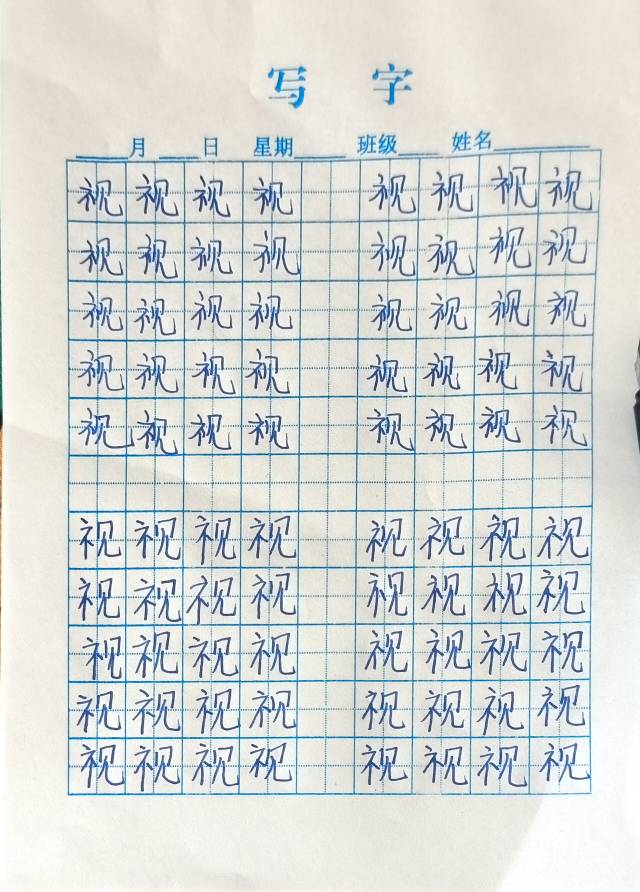 写 字
____月____日 星期_____ 班级____ 姓名_________
视 视 视 视 视 视 视 视
视 视 视 视 视 视 视 视
视 视 视 视 视 视 视 视
视 视 视 视 视 视 视 视
视 视 视 视 视 视 视 视
视 视 视 视 视 视 视 视
视 视 视 视 视 视 视 视
视 视 视 视 视 视 视 视
视 视 视 视 视 视 视 视
视 视 视 视 视 视 视 视